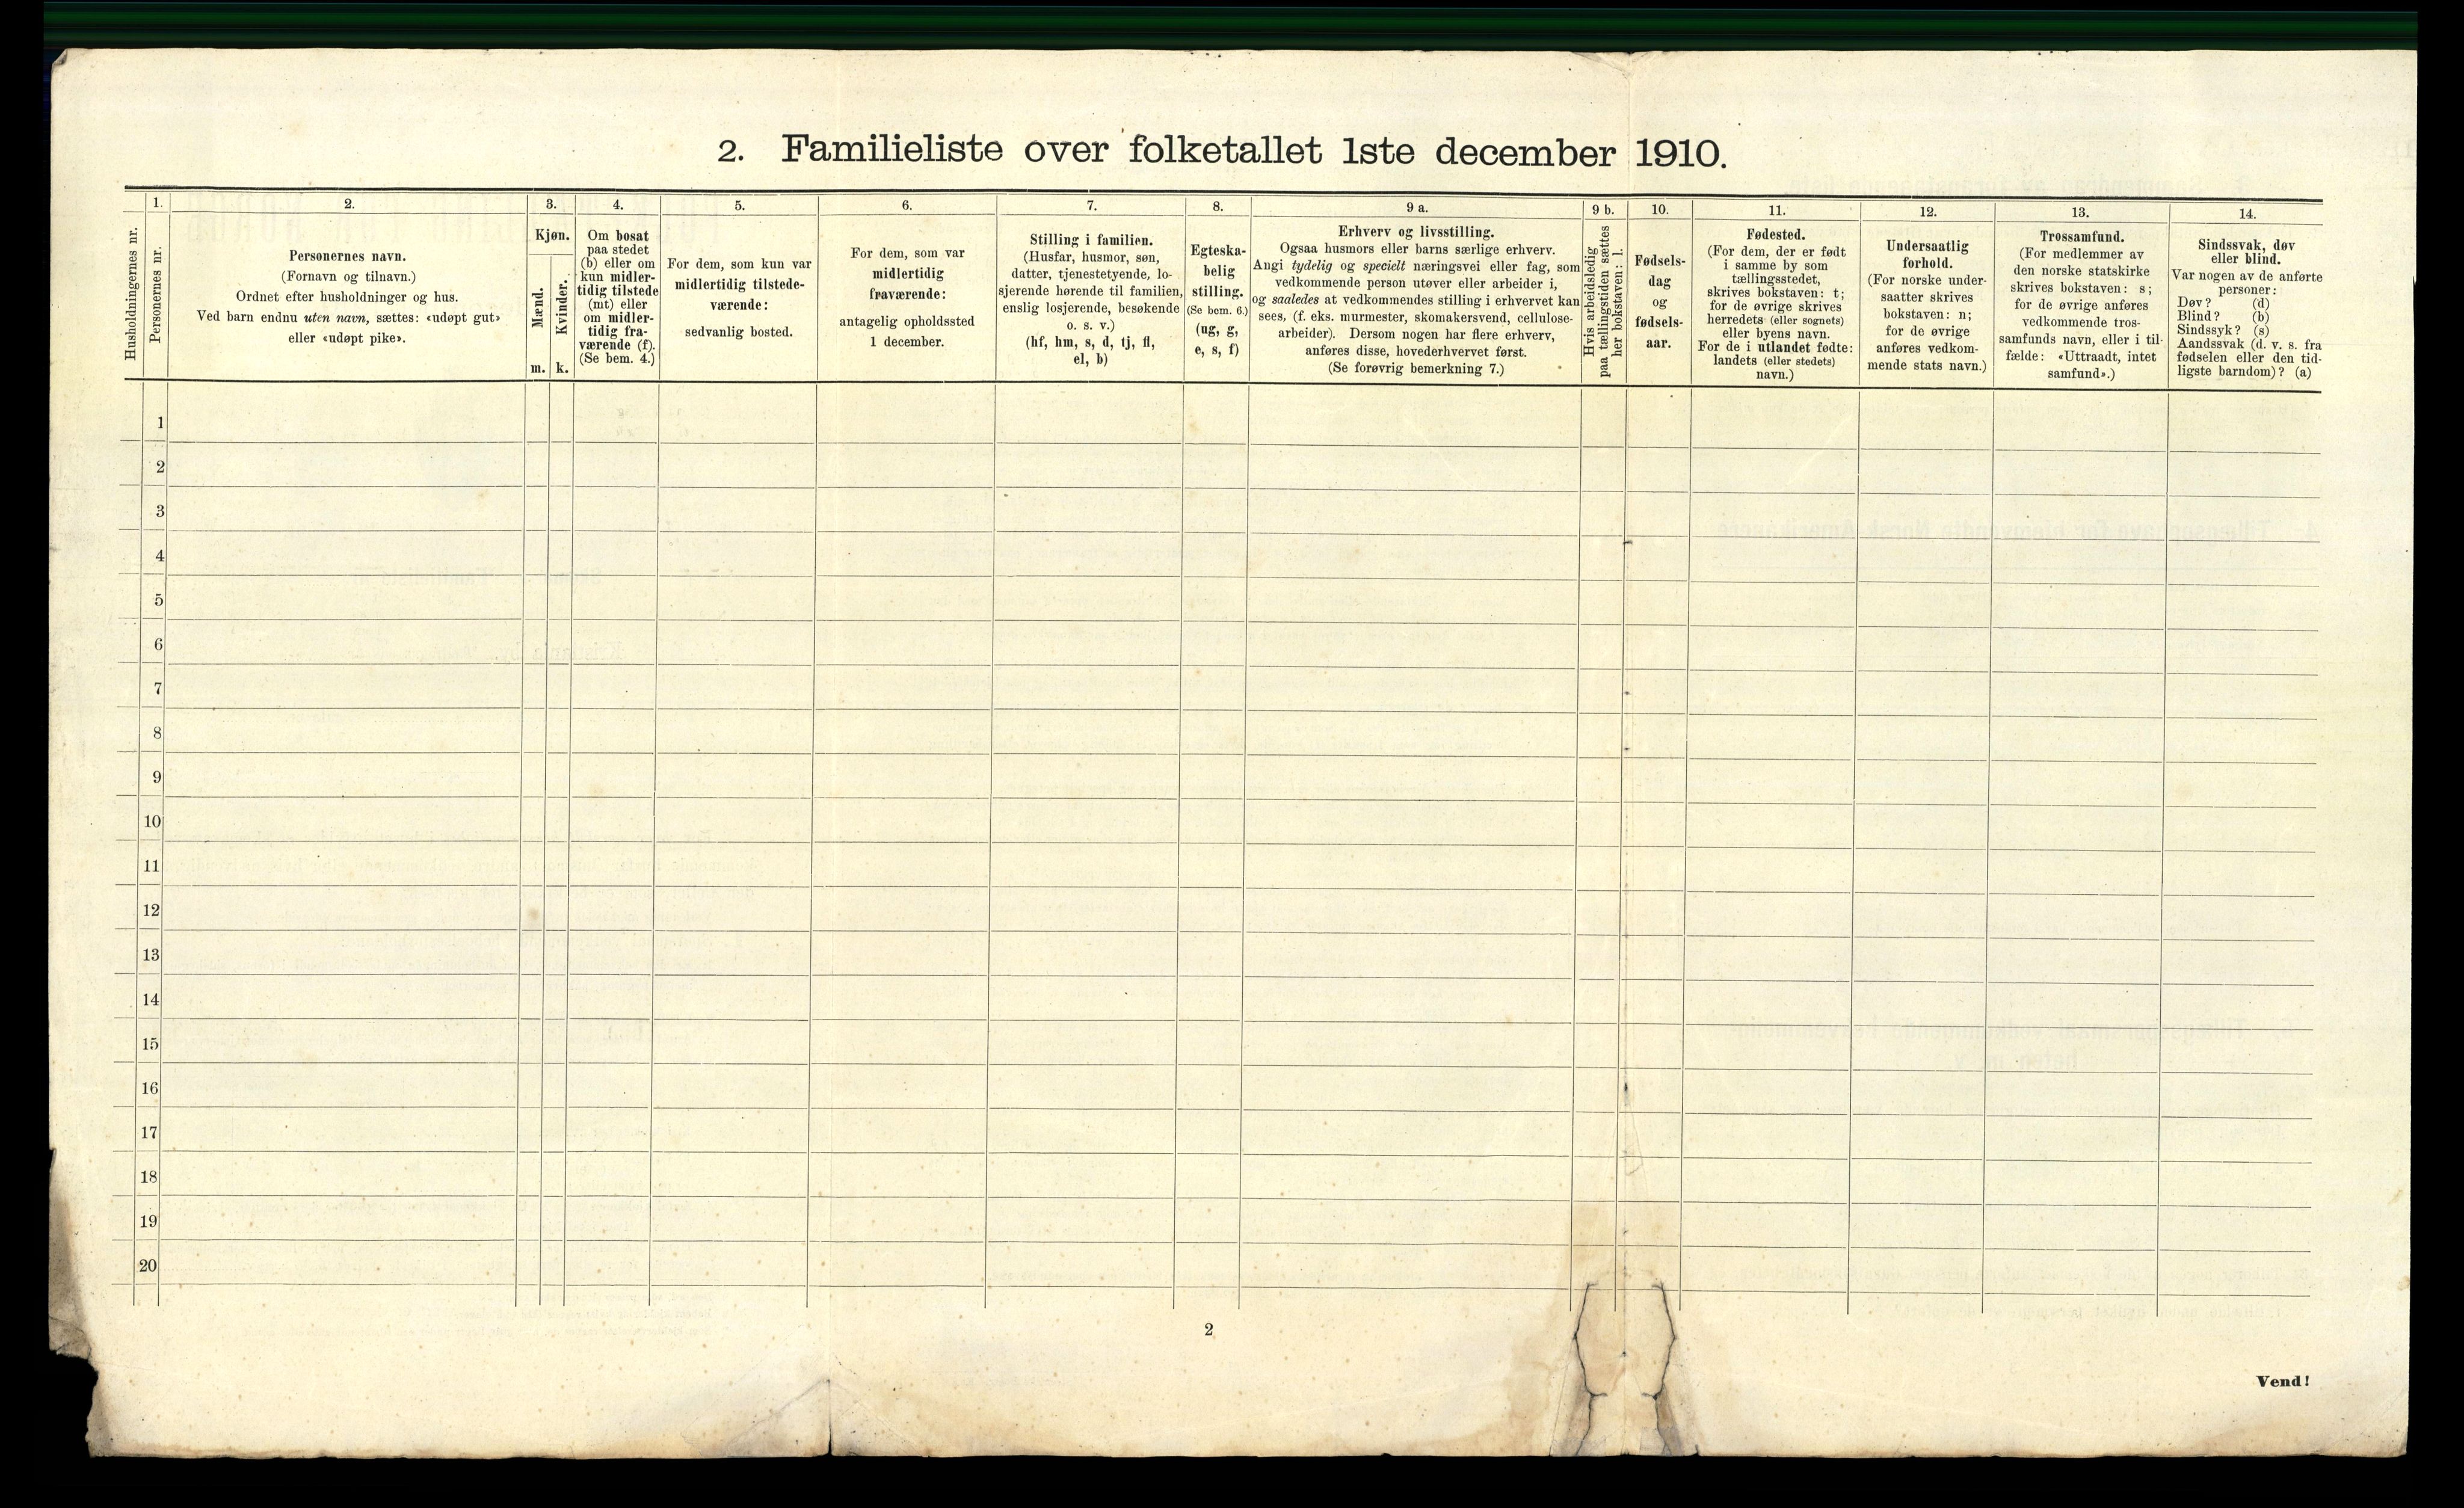 2. Familieliste over folketallet 1ste december 1910.
Husholdningernes nr.
1.
Personernes nr.
2.
Personernes navn.
(Fornavn og tilnavn.)
Ordnet efter husholdninger og hus.
Ved barn endnu uten navn, sættes: «udøpt gut»
eller «udøpt pike».
3.
Kjøn.
Mænd.
Kvinder.
m. k.
4.
Om bosat
paa stedet
(b) eller om
kun midler-
tidig tilstede
(mt) eller
om midler-
tidig fra-
værende (f).
(Se bem. 4.)
5.
For dem, som kun var
midlertidig tilstede-
værende:
sedvanlig bosted.
6.
For dem, som var
midlertidig
fraværende:
antagelig opholdssted
1 december.
7.
Stilling i familien.
(Husfar, husmor, søn,
datter, tjenestetyende, lo-
sjerende hørende til familien,
enslig losjerende, besøkende
o. s. v.)
(hf, hm, s, d, tj, fl,
el, b)
8.
Egteska-
belig
stilling.
(Se bem. 6.)
(ug, g,
e, s, f)
9 a.
Erhverv og livsstilling.
Ogsaa husmors eller barns særlige erhverv.
Angi tydelig og specielt næringsvei eller fag, som
vedkommende person utøver eller arbeider i,
og saaledes at vedkommendes stilling i erhvervet kan
sees, (f. eks. murmester, skomakersvend, cellulose-
arbeider). Dersom nogen har flere erhverv,
anføres disse, hovederhvervet først.
(Se forøvrig bemerkning 7.)
9 b.
Hvis arbeidsledig
paa tællingstiden sættes
her bokstaven: l.
10.
Fødsels-
dag
og
fødsels-
aar.
11.
Fødested.
(For dem, der er født
i samme by som
tællingsstedet,
skrives bokstaven: t;
for de øvrige skrives
herredets (eller sognets)
eller byens navn.
For de i utlandet fødte:
landets (eller stedets)
navn.)
12.
Undersaatlig
forhold.
(For norske under-
saatter skrives
bokstaven: n;
for de øvrige
anføres vedkom-
mende stats navn.)
13.
Trossamfund.
(For medlemmer av
den norske statskirke
skrives bokstaven: s;
for de øvrige anføres
vedkommende tros-
samfunds navn, eller i til-
fælde: «Uttraadt, intet
samfund».)
14.
Sindssvak, døv
eller blind.
Var nogen av de anførte
personer:
Døv? (d)
Blind? (b)
Sindssyk? (s)
Aandssvak (d. v. s. fra
fødselen eller den tid-
ligste barndom)? (a)
1
2
3
4
5
6
7
8
9
10
11
12
13
14
15
16
17
18
19
20
2
Vend!